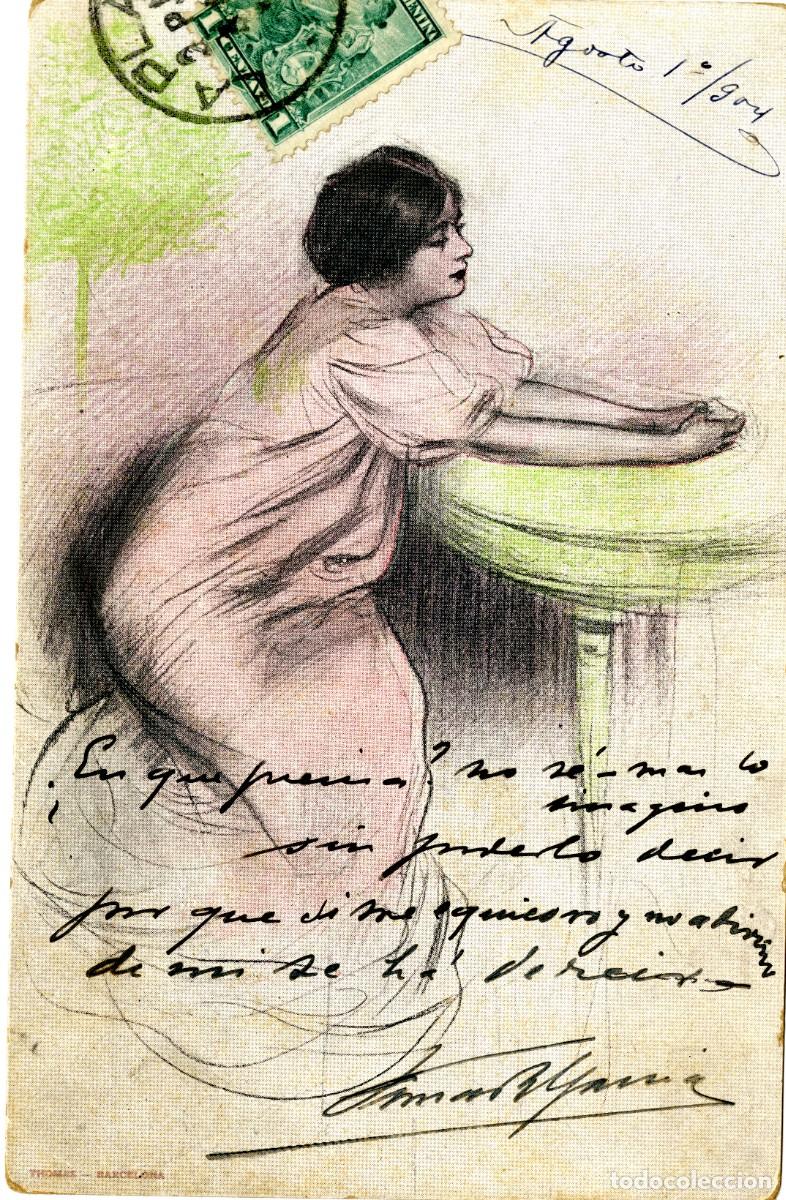 LA PLA
2 P
1
Agosto 1º/904
¿En que piensa? no sé - mas lo
imagino
sin poderlo decir
por que si me equivoco y no adivino
de mi se há de reir -
Tomas R Garcia
THOMAS — BARCELONA
todocoleccion